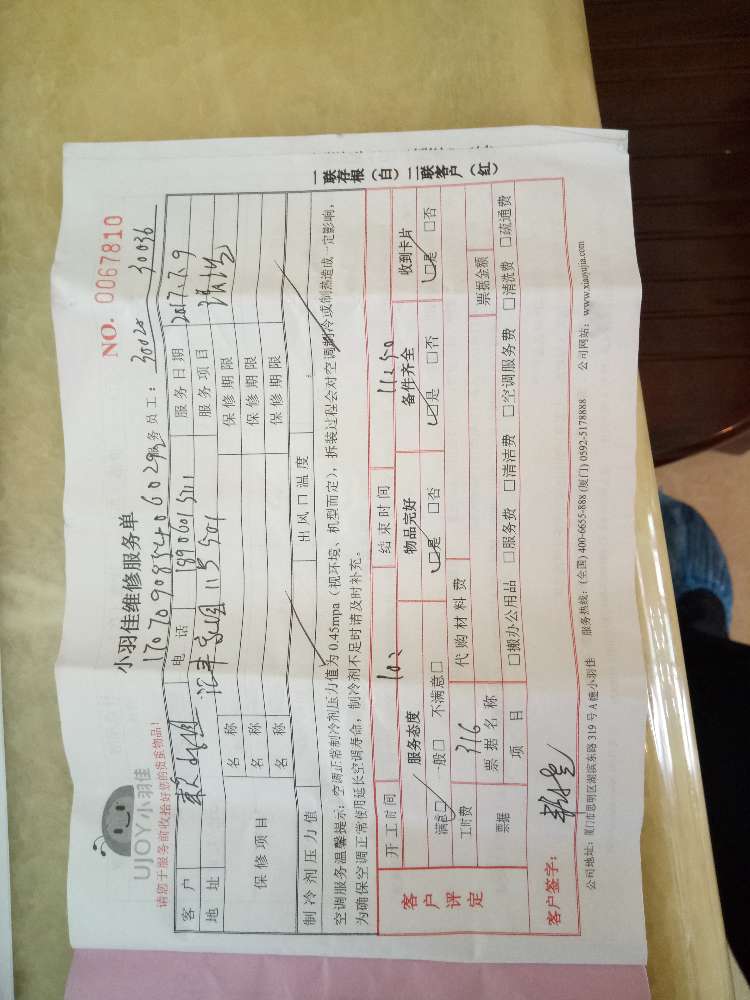 UJOY小羽佳
小羽佳维修服务单
NO. 0067810
请您于服务前收拾好您的贵重物品!
服务员工: 30020 30036
客户 电话 18906015711 服务日期 2017.7.9
地址 服务项目
保修项目 名称 保修期限
名称 保修期限
名称 保修期限
制冷剂压力值 出风口温度
空调服务温馨提示: 空调正常制冷剂压力值为 0.45mpa (视环境、机型而定), 拆装过程会对空调制冷或制热造成一定影响,
为确保空调正常使用延长空调寿命, 制冷剂不足时请及时补充。
客户评定 开工时间 结束时间
服务态度 物品完好 备件齐全 收到卡片
满意□ 一般□ 不满意□ □是 □否 □是 □否 □是 □否
工时费 316 代购材料费
票据 票据名称 票据金额
项目 □搬办公用品 □服务费 □清洁费 □空调服务费 □清洗费 □疏通费
客户签字:
公司地址: 厦门市思明区湖滨东路 319 号 A 幢小羽佳 服务热线: (全国) 400-6655-888 (厦门) 0592-5178888 公司网站: www.xiaoyujia.com
一联存根(白) 二联客户(红)